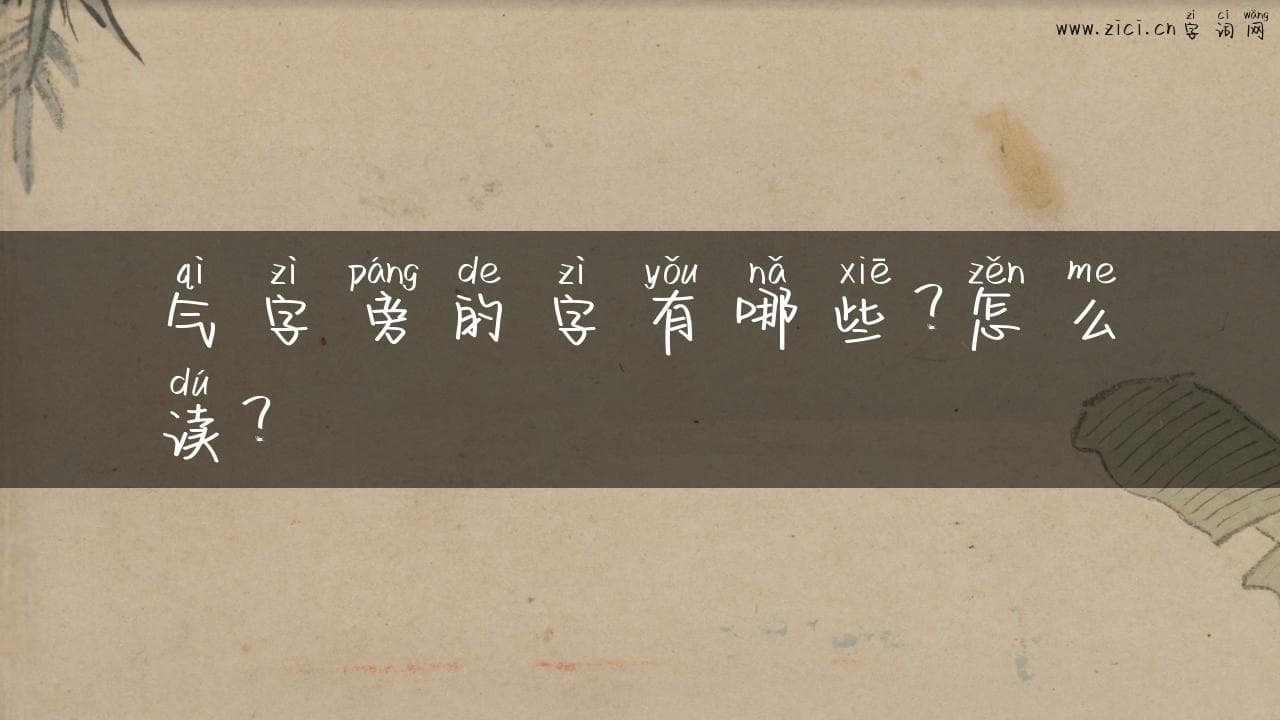 www.zici.cn zì cí wǎng
字词网
qì zì páng de zì yǒu nǎ xiē zěn me
气字旁的字有哪些?怎么
dú
读?